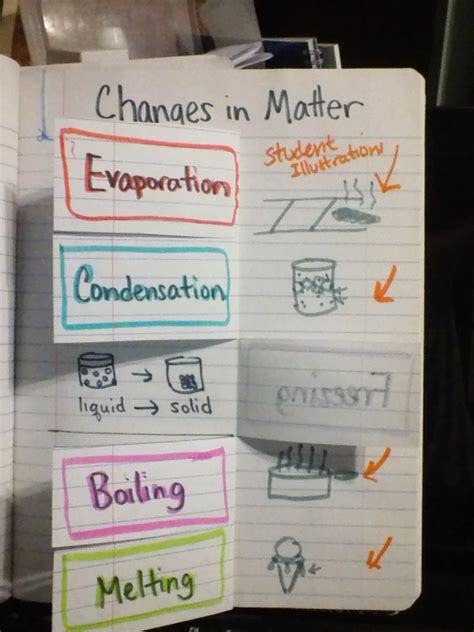 Changes in Matter
Student
Illustration
Evaporation
Condensation
Freezing
liquid → solid
Boiling
Melting